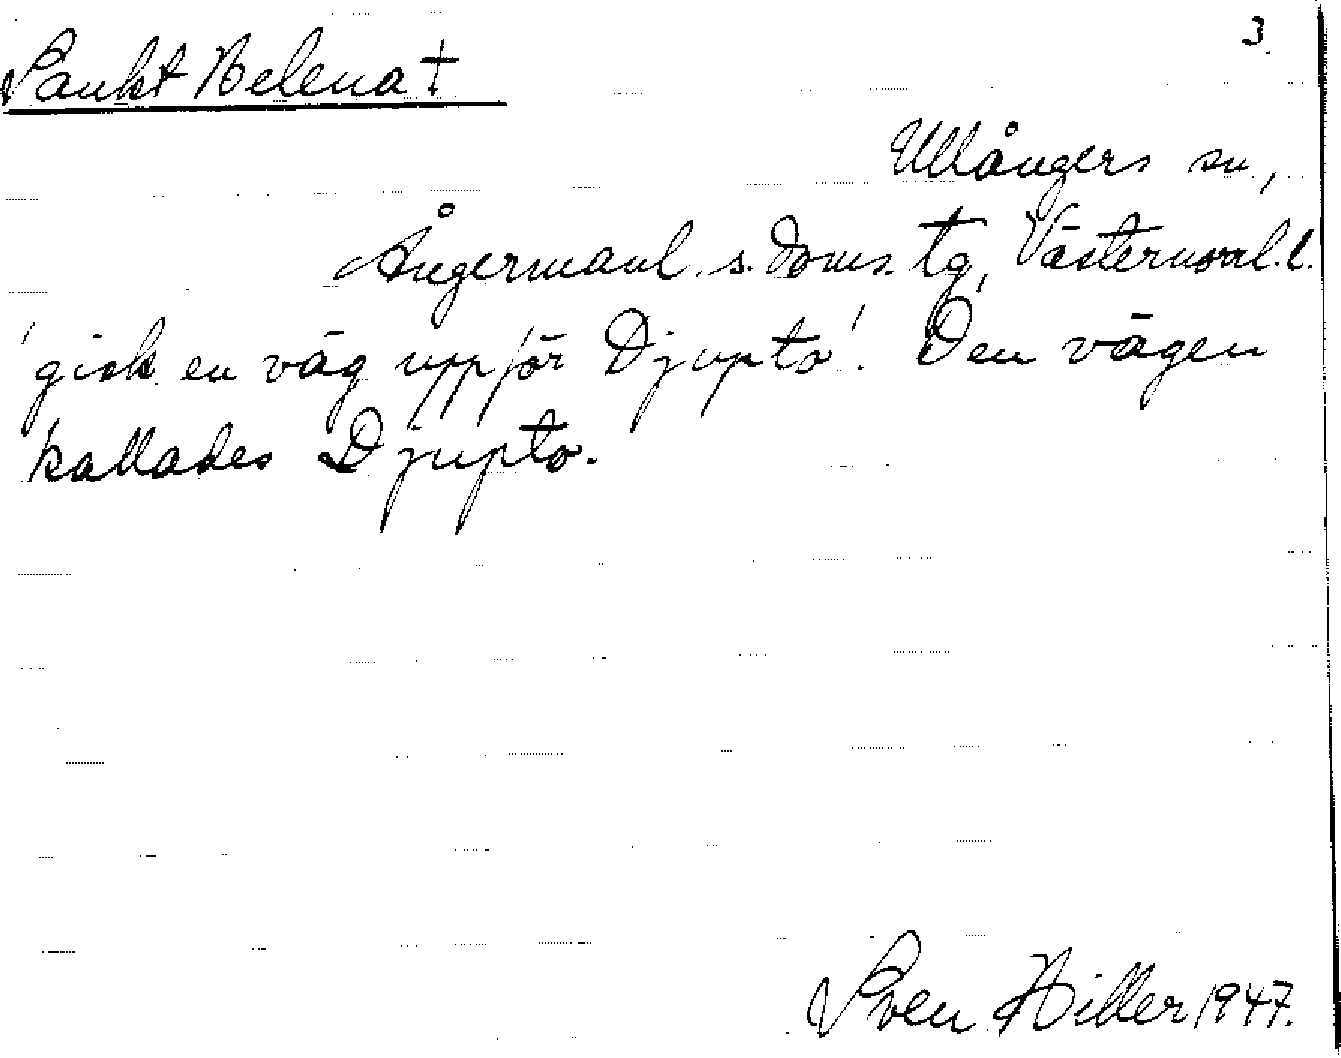 3.
Sankt Helena †
Ullångers sn,
Ångermanl. s. doms. tg, Västernorrl. l.
'gick en väg uppför Djupto'. Den vägen
kallades Djupto.
Sven Hiller 1947.